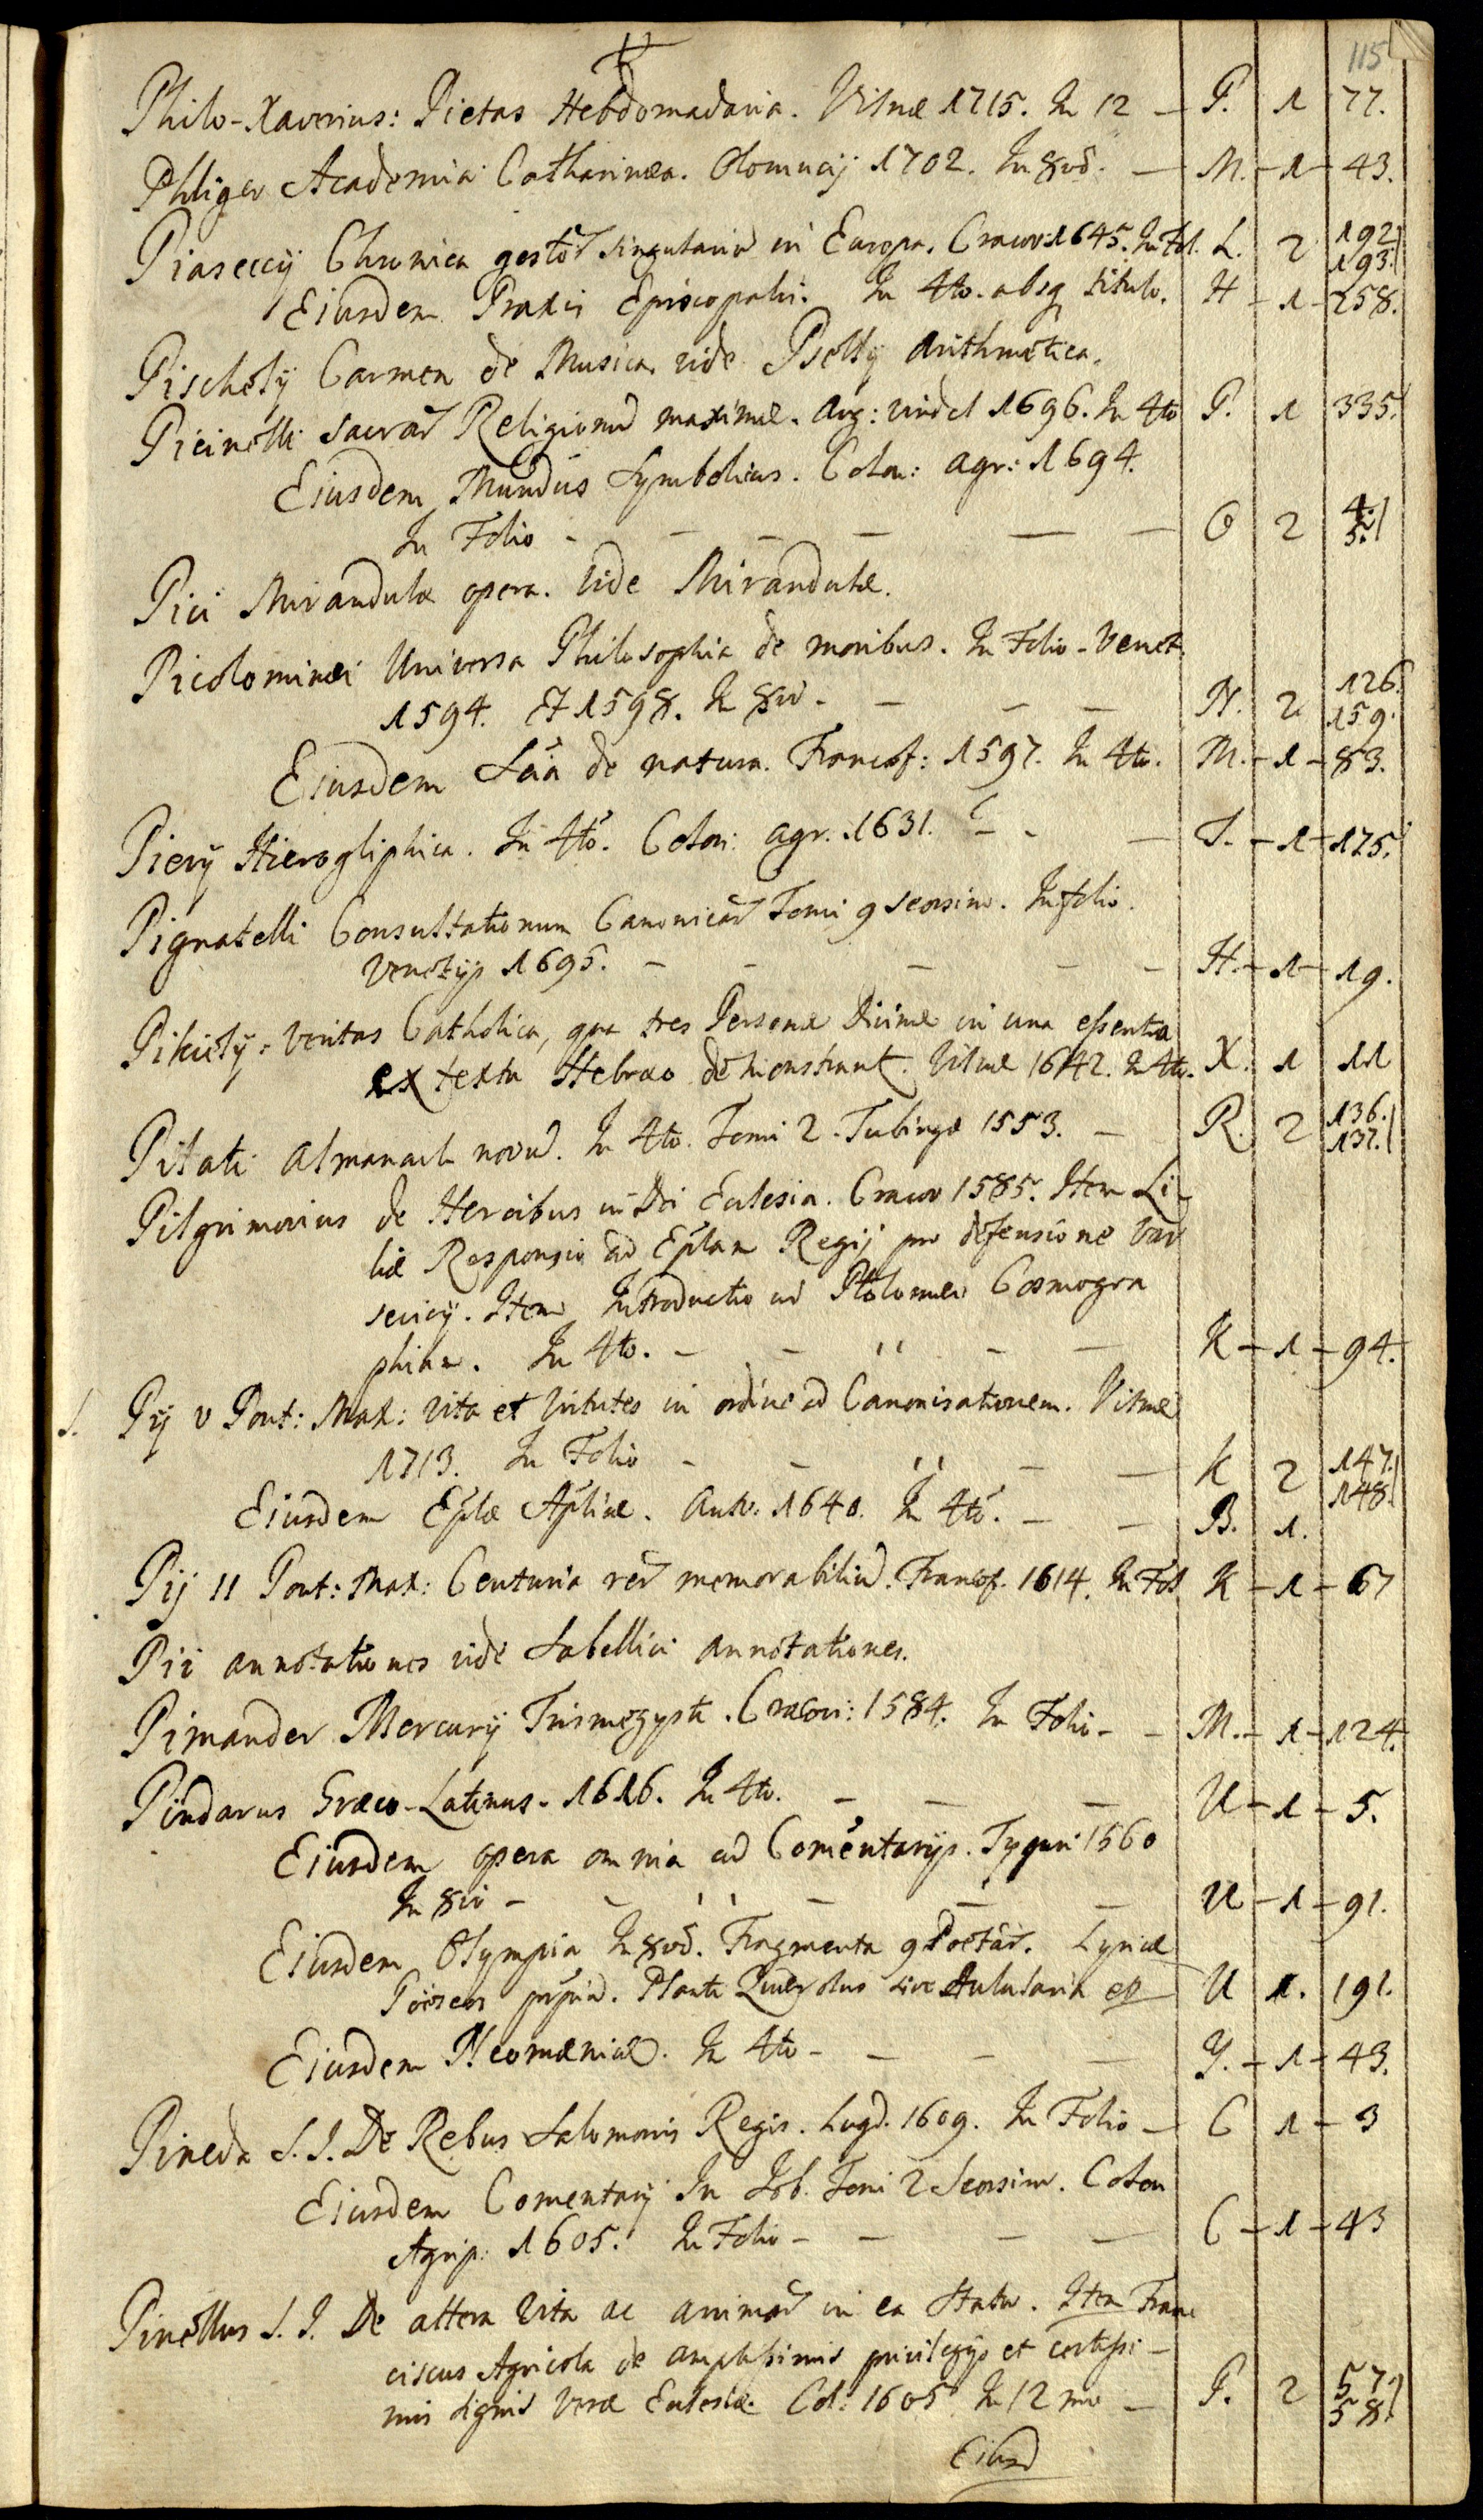 115
Philo-Xaverius: Pietas Hebdomadaria. Vilnæ 1715. In 12 — P. 1 77.
Phliger Academia Catharinæa. Olomucij 1702. In 8vō. — M. - 1 - 43.
Piasecij Chronica gestor̄ singularior̄ in Europa. Cracov: 1645. In Fol. L. 2 192. 193.
Eiusdem Praxis Episcopalis. In 4to. absq titulo. H - 1 - 258.
Carmen de Musica. vide Pselly Arithmetica.
Picinelli Sacrar̄ Religionū maximæ. Aug: vindel 1696. In 4to P. 1 335.
Eiusdem Mundus Symbolicus. Colon: agr: 1694.
In Folio - — — — — — O 2 4. 5.
Pici Mirandulæ opera. Vide Mirandulæ.
Picolominæi Universa Philosophia de moribus. In Folio - Venet.
1594. Et 1598. In 8vo. — — — N. 2 126. 159.
Eiusdem Scīa de natura. Francof: 1597. In 4to. M. - 1 - 83.
Piery Hierogliphica. In 4tō. Colon: agr. 1631. — S. - 1 - 175.
Pignatelli Consultationum Canonicar̄ Tomi 9 seorsim. In folio.
Venetijs 1695. — — — — — H. - 1 - 19.
Pikiely: Veritas Catholica, qua tres Personæ Divinæ in una essentia
ex textu Hebræo demonstrant. Vilnæ 1642. In 4to. X. 1 11
Pitati Almanach novū. In 4to. Tomi 2. Tubingæ 1553. — R. 2 136. 137.
Pilgrimovius de Heroibus in Dei Eclesia. Cracov 1585. Item Li-
liæ Responsio ad Epl̄am Regij pro defensione Var
sevicij. Item Introductio in Ptolomæi Cosmogra
phiam. In 4to. — — — — K - 1 - 94.
S. Pij V Pont: Max: Vita et Virtutes in ordine ad Canonisationem. Vilnæ
1713. In Folio - — — — K 2 147. 148.
Eiusdem Epl̄æ Apl̄icæ. Antv: 1640. In 4tō. — — B. 1.
Pij II Pont: Max: Centuria rer̄ memorabiliū. Francof. 1614. In Fol K - 1 - 67
Pii annotationes vide Sabellici annotationes.
Pimander Mercurij Trismegysti. Cracov: 1584. In Folio - — M. - 1 - 124.
Pindarus Græco-Latinus. 1616. In 4to. — — — U - 1 - 5.
Eiusdem opera omnia cū Comētarijs. Tyguri 1560
In 8vo - — — — — U - 1 - 91.
Eiusdem Olympia In 8vō. Fragmenta 9 Poetar̄. Lyricæ
Poeseos Plauti Querolus sive Aulularia U 1. 191.
Eiusdem Neomæniæ. In 4to - — — — Y. - 1 - 43.
Pineda S.J. De Rebus Salomonis Regis. Lugd. 1609. In Folio — C 1 - 3
Eiusdem Comentarij In Job. Tomi 2 Seorsim. Colon
Agrip: 1605. In Folio - — — — C - 1 - 43
Pinellus S.J. De altera Vita ac animar̄ in ea statu. Item Fran
ciscus Agricola de amplissimis privilegijs et certissi-
mis signis Veræ Eclesiæ. Col: 1605. In 12mo — P. 2 57. 58.
Eiusd